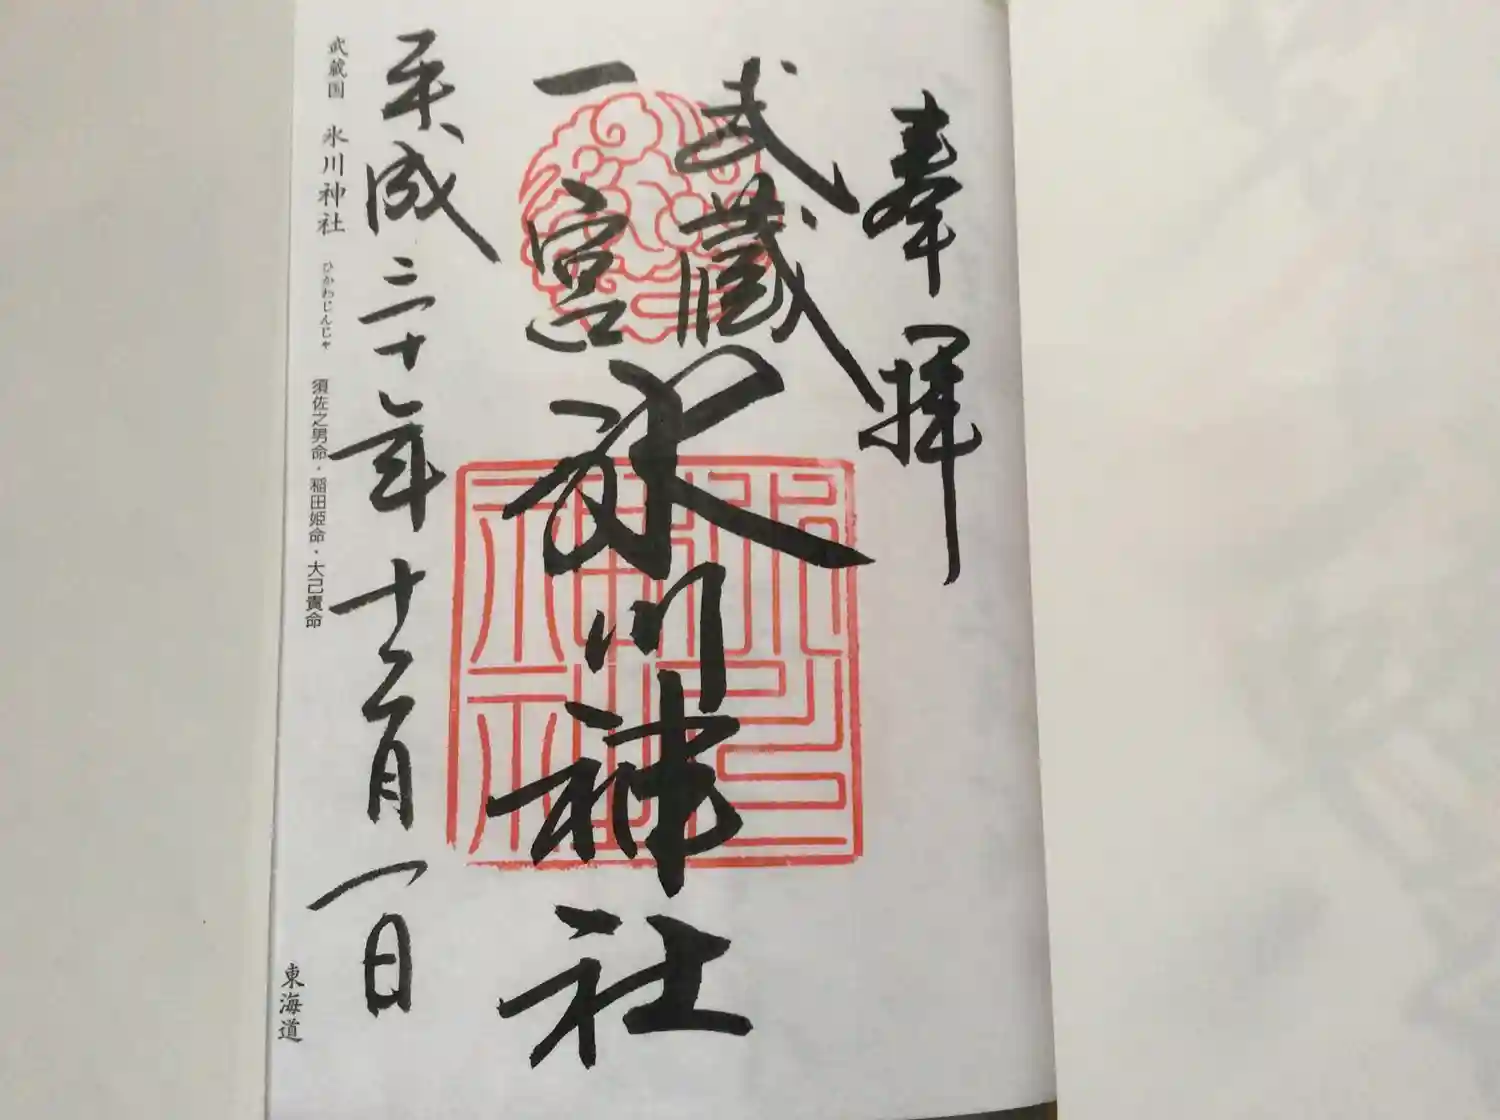 奉拝
武蔵
一宮
氷川神社
平成三十年十二月一日
武蔵国 氷川神社 ひかわじんじゃ 須佐之男命・稲田姫命・大己貴命
東海道